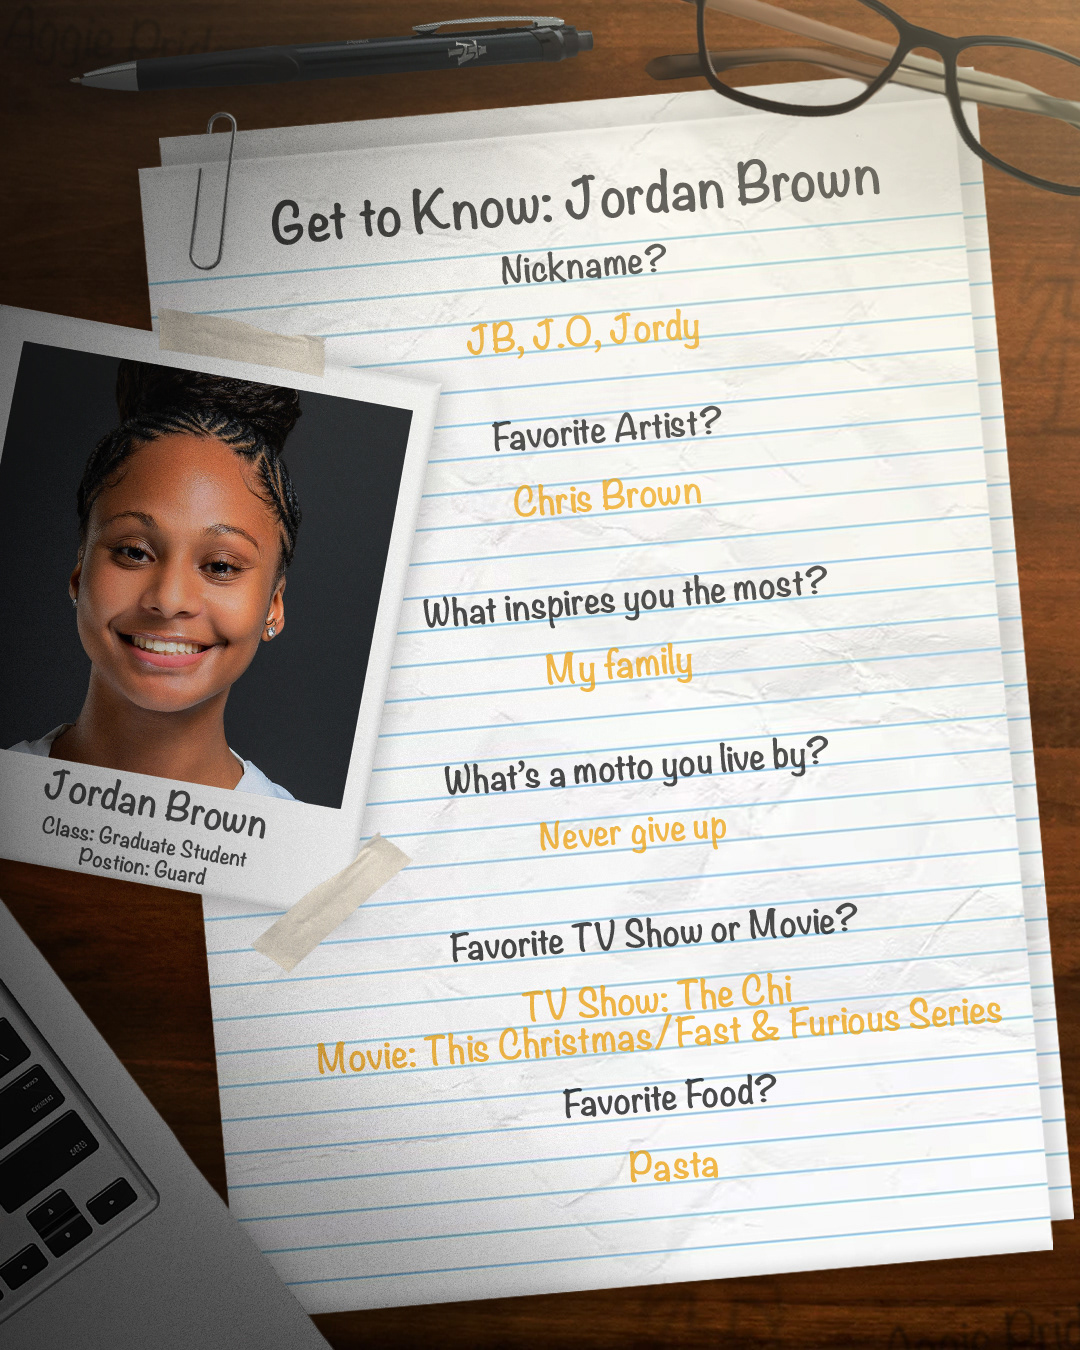 Aggie Prid
Get to Know: Jordan Brown
Nickname?
JB, J.O, Jordy
Favorite Artist?
Chris Brown
What inspires you the most?
My family
What's a motto you live by?
Never give up
Favorite TV Show or Movie?
TV Show: The Chi
Movie: This Christmas/Fast & Furious Series
Favorite Food?
Pasta
Jordan Brown
Class: Graduate Student
Postion: Guard
Aggie Prid